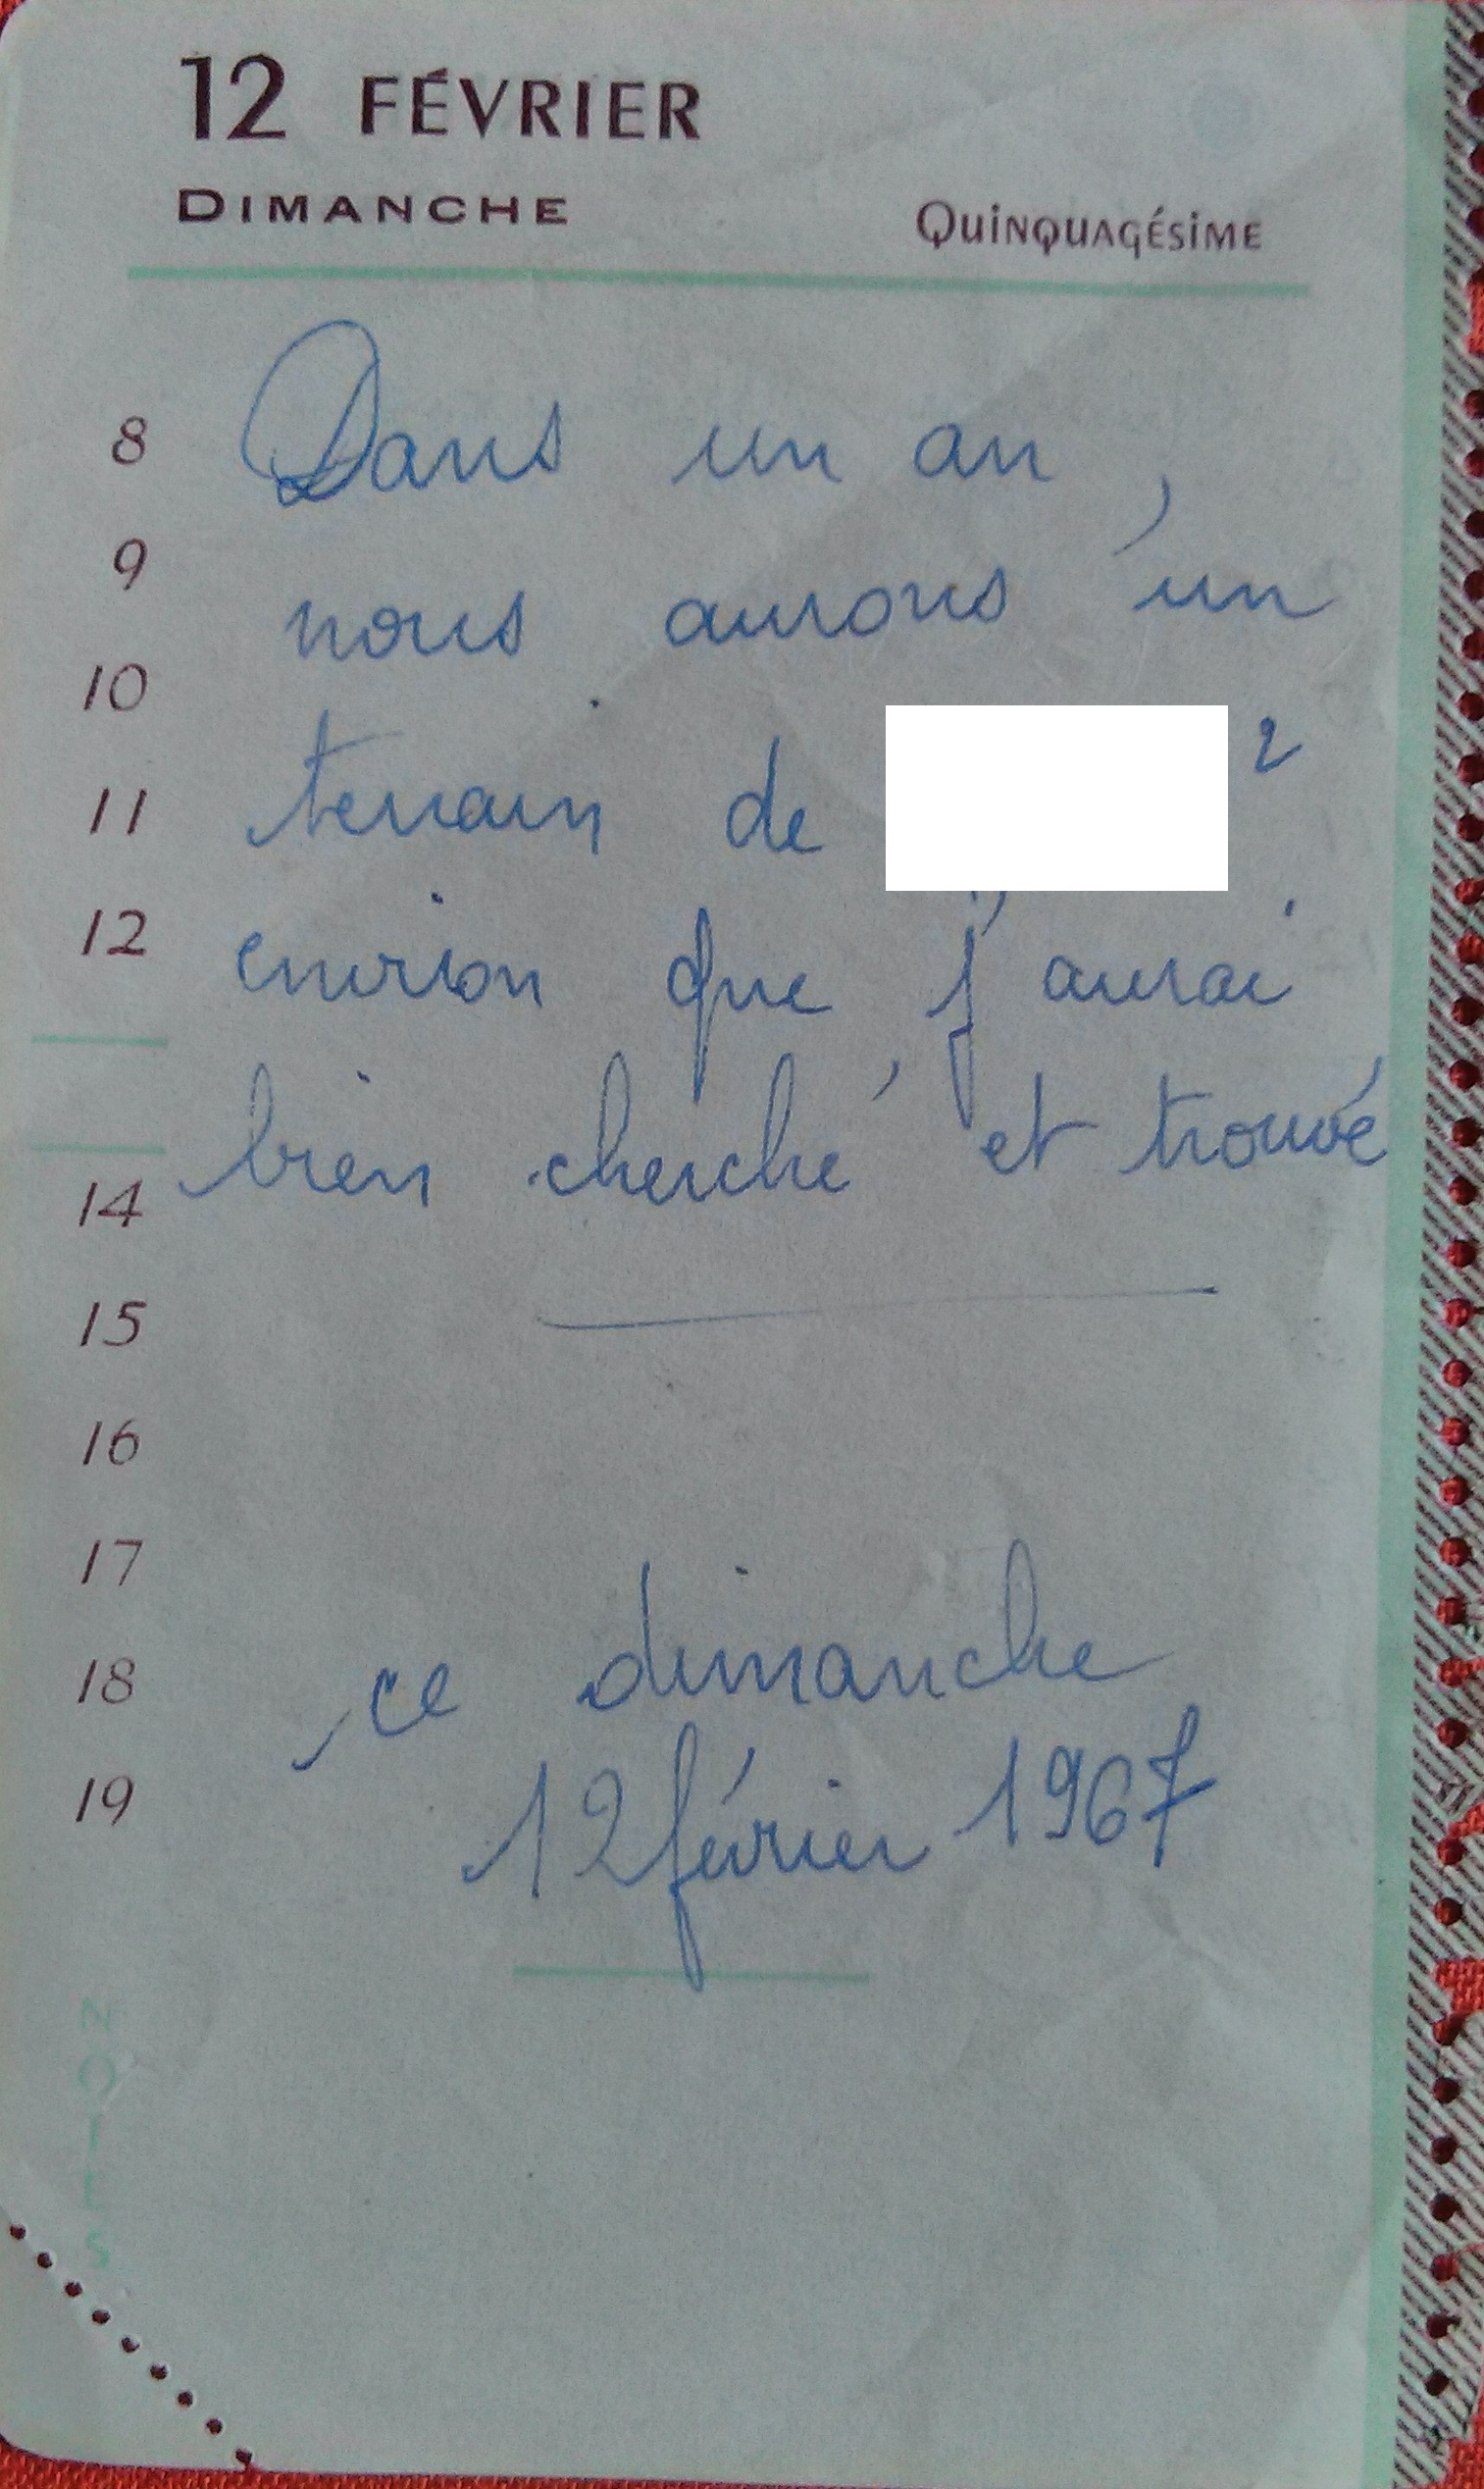 12 FÉVRIER
DIMANCHE QUINQUAGÉSIME
8 Dans un an,
9 nous aurons un
10
11 terrain de 2
12 environ que j'aurai
bien cherché, et trouvé
14
15
16
17
18 ce dimanche
19 12 février 1967
NOTES